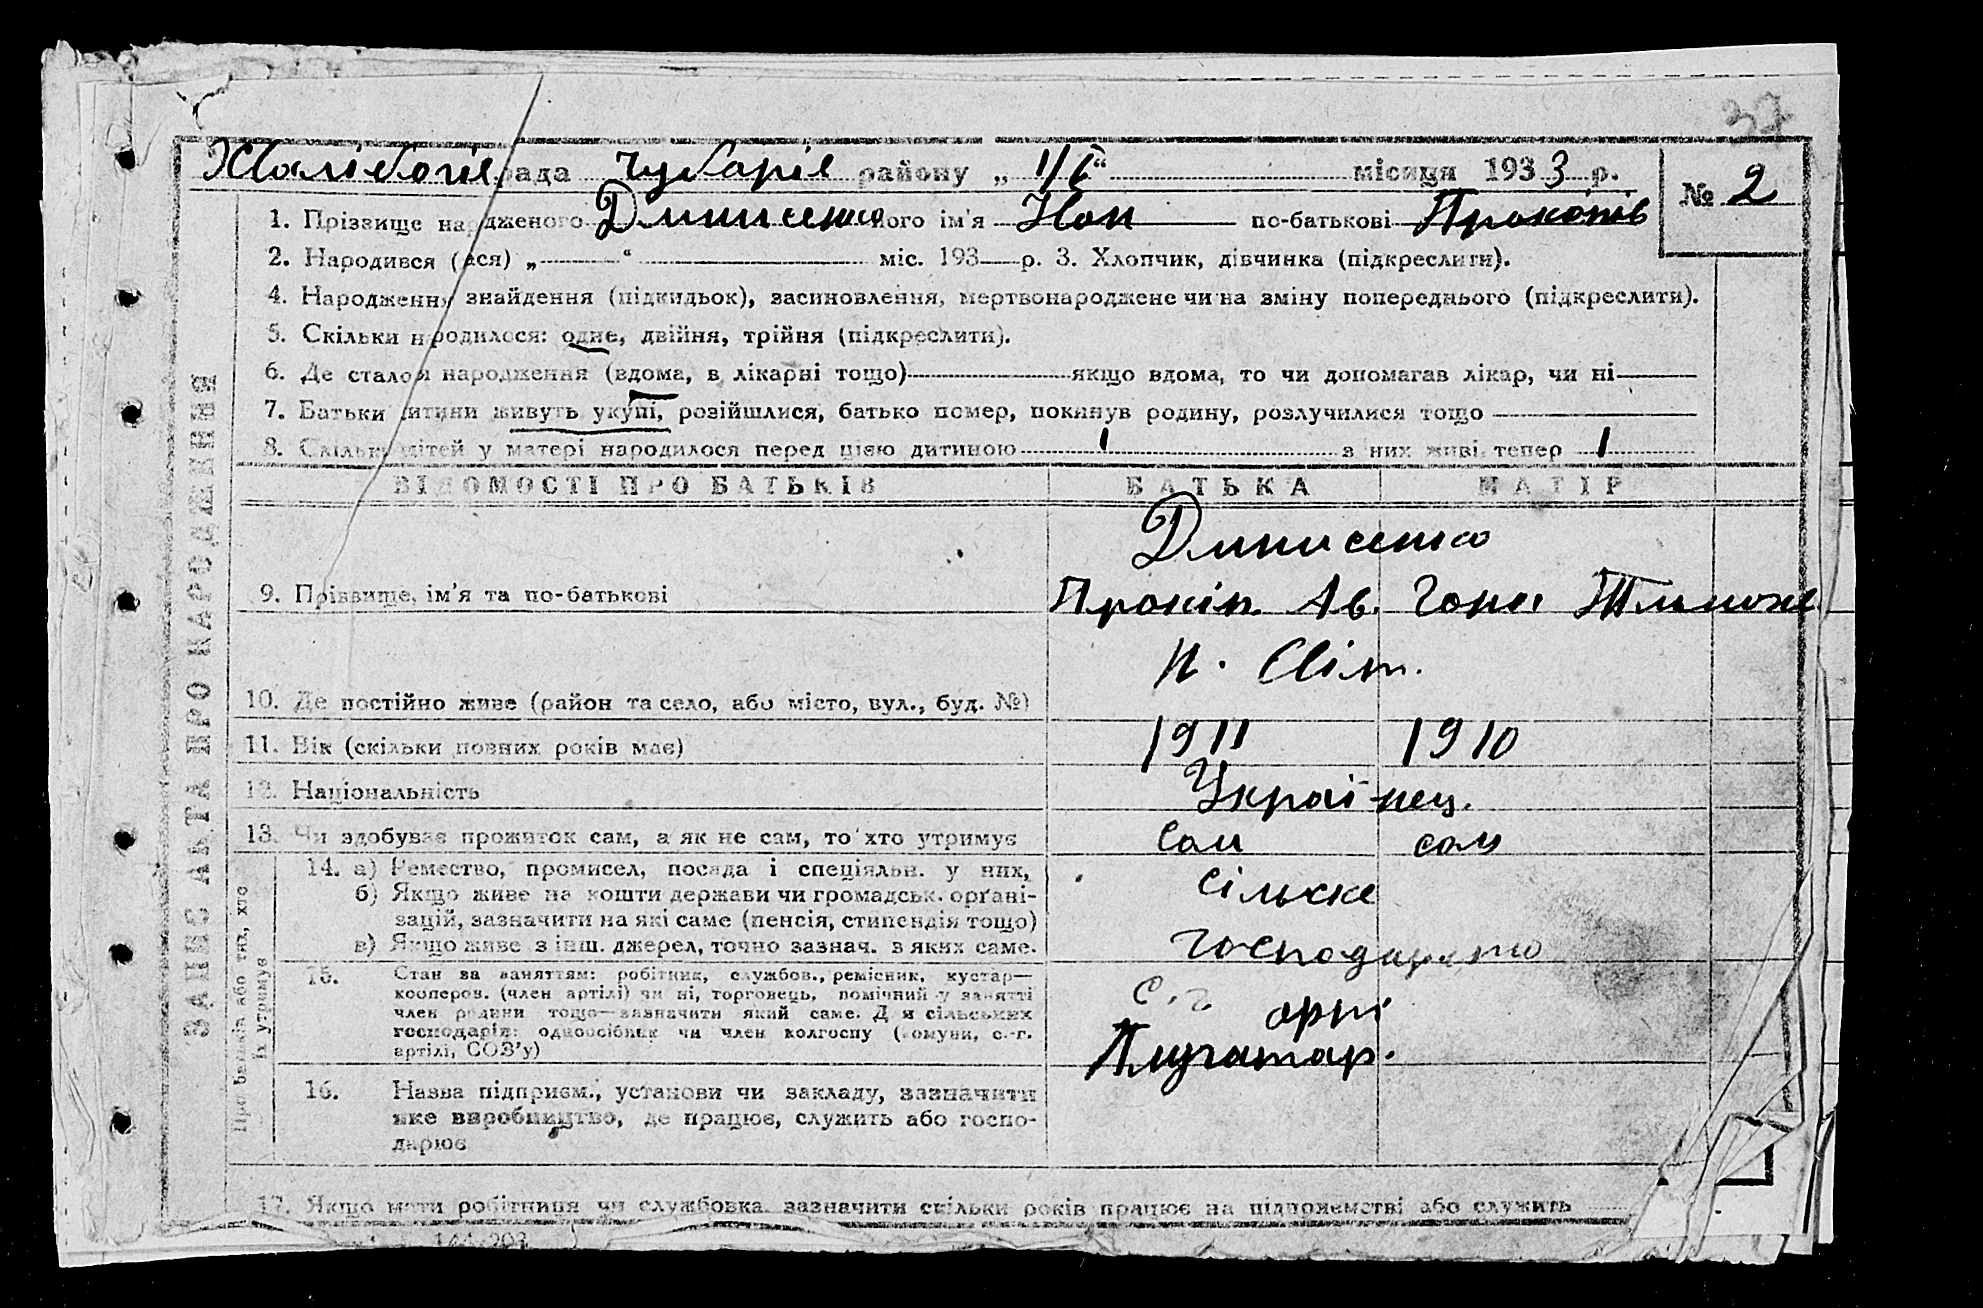 37
рада Чубарів району „ 1/І “ місяця 1933 р. № 2
1. Прізвище народженого його ім'я по-батькові Прокопів
2. Народився (лася) „ “ міс. 193 р. 3. Хлопчик, дівчинка (підкреслити).
4. Народження, знайдення (підкидьок), засиновлення, мертвонароджене чи на зміну попереднього (підкреслити).
5. Скільки народилося: одне, двійня, трійня (підкреслити).
6. Де сталося народження (вдома, в лікарні тощо) якщо вдома, то чи допомагав лікар, чи ні
7. Батьки дитини живуть укупі, розійшлися, батько помер, покинув родину, розлучилися тощо
8. Скільки дітей у матері народилося перед цією дитиною 1 з них живі тепер 1
ЗАПИС АКТА ПРО НАРОДЖЕННЯ
ВІДОМОСТІ ПРО БАТЬКІВ БАТЬКА МАТІР
9. Прізвище, ім'я та по-батькові
Прокіп Ав.
10. Де постійно живе (район та село, або місто, вул., буд. №)
11. Вік (скільки повних років має) 1911 1910
12. Національність Україінец.
13. Чи здобуває прожиток сам, а як не сам, то хто утримує сам сам
Про батьків або тих, хто їх утримує
14. а) Ремество, промисел, посада і спеціяльн. у них, сільске
б) Якщо живе на кошти держави чи громадськ. орґані-
зацій, зазначити на які саме (пенсія, стипендія тощо)
в) Якщо живе з інш. джерел, точно зазнач. з яких саме. господарство
15. Стан за заняттям: робітник, службов., ремісник, кустар—
кооперов. (член артілі) чи ні, торговець, помічний у занятті
член родини тощо—зазначити який саме. Для сільських
господарів: одноосібник чи член колгоспу (комуни, с.-г.
артілі, СОЗ'у)
с. г. арті
Плугатар.
16. Назва підприєм., установи чи закладу, зазначити
яке виробництво, де працює, служить або госпо-
дарює
17. Якщо мати робітниця чи службовка зазначити скільки років працює на підприємстві або служить